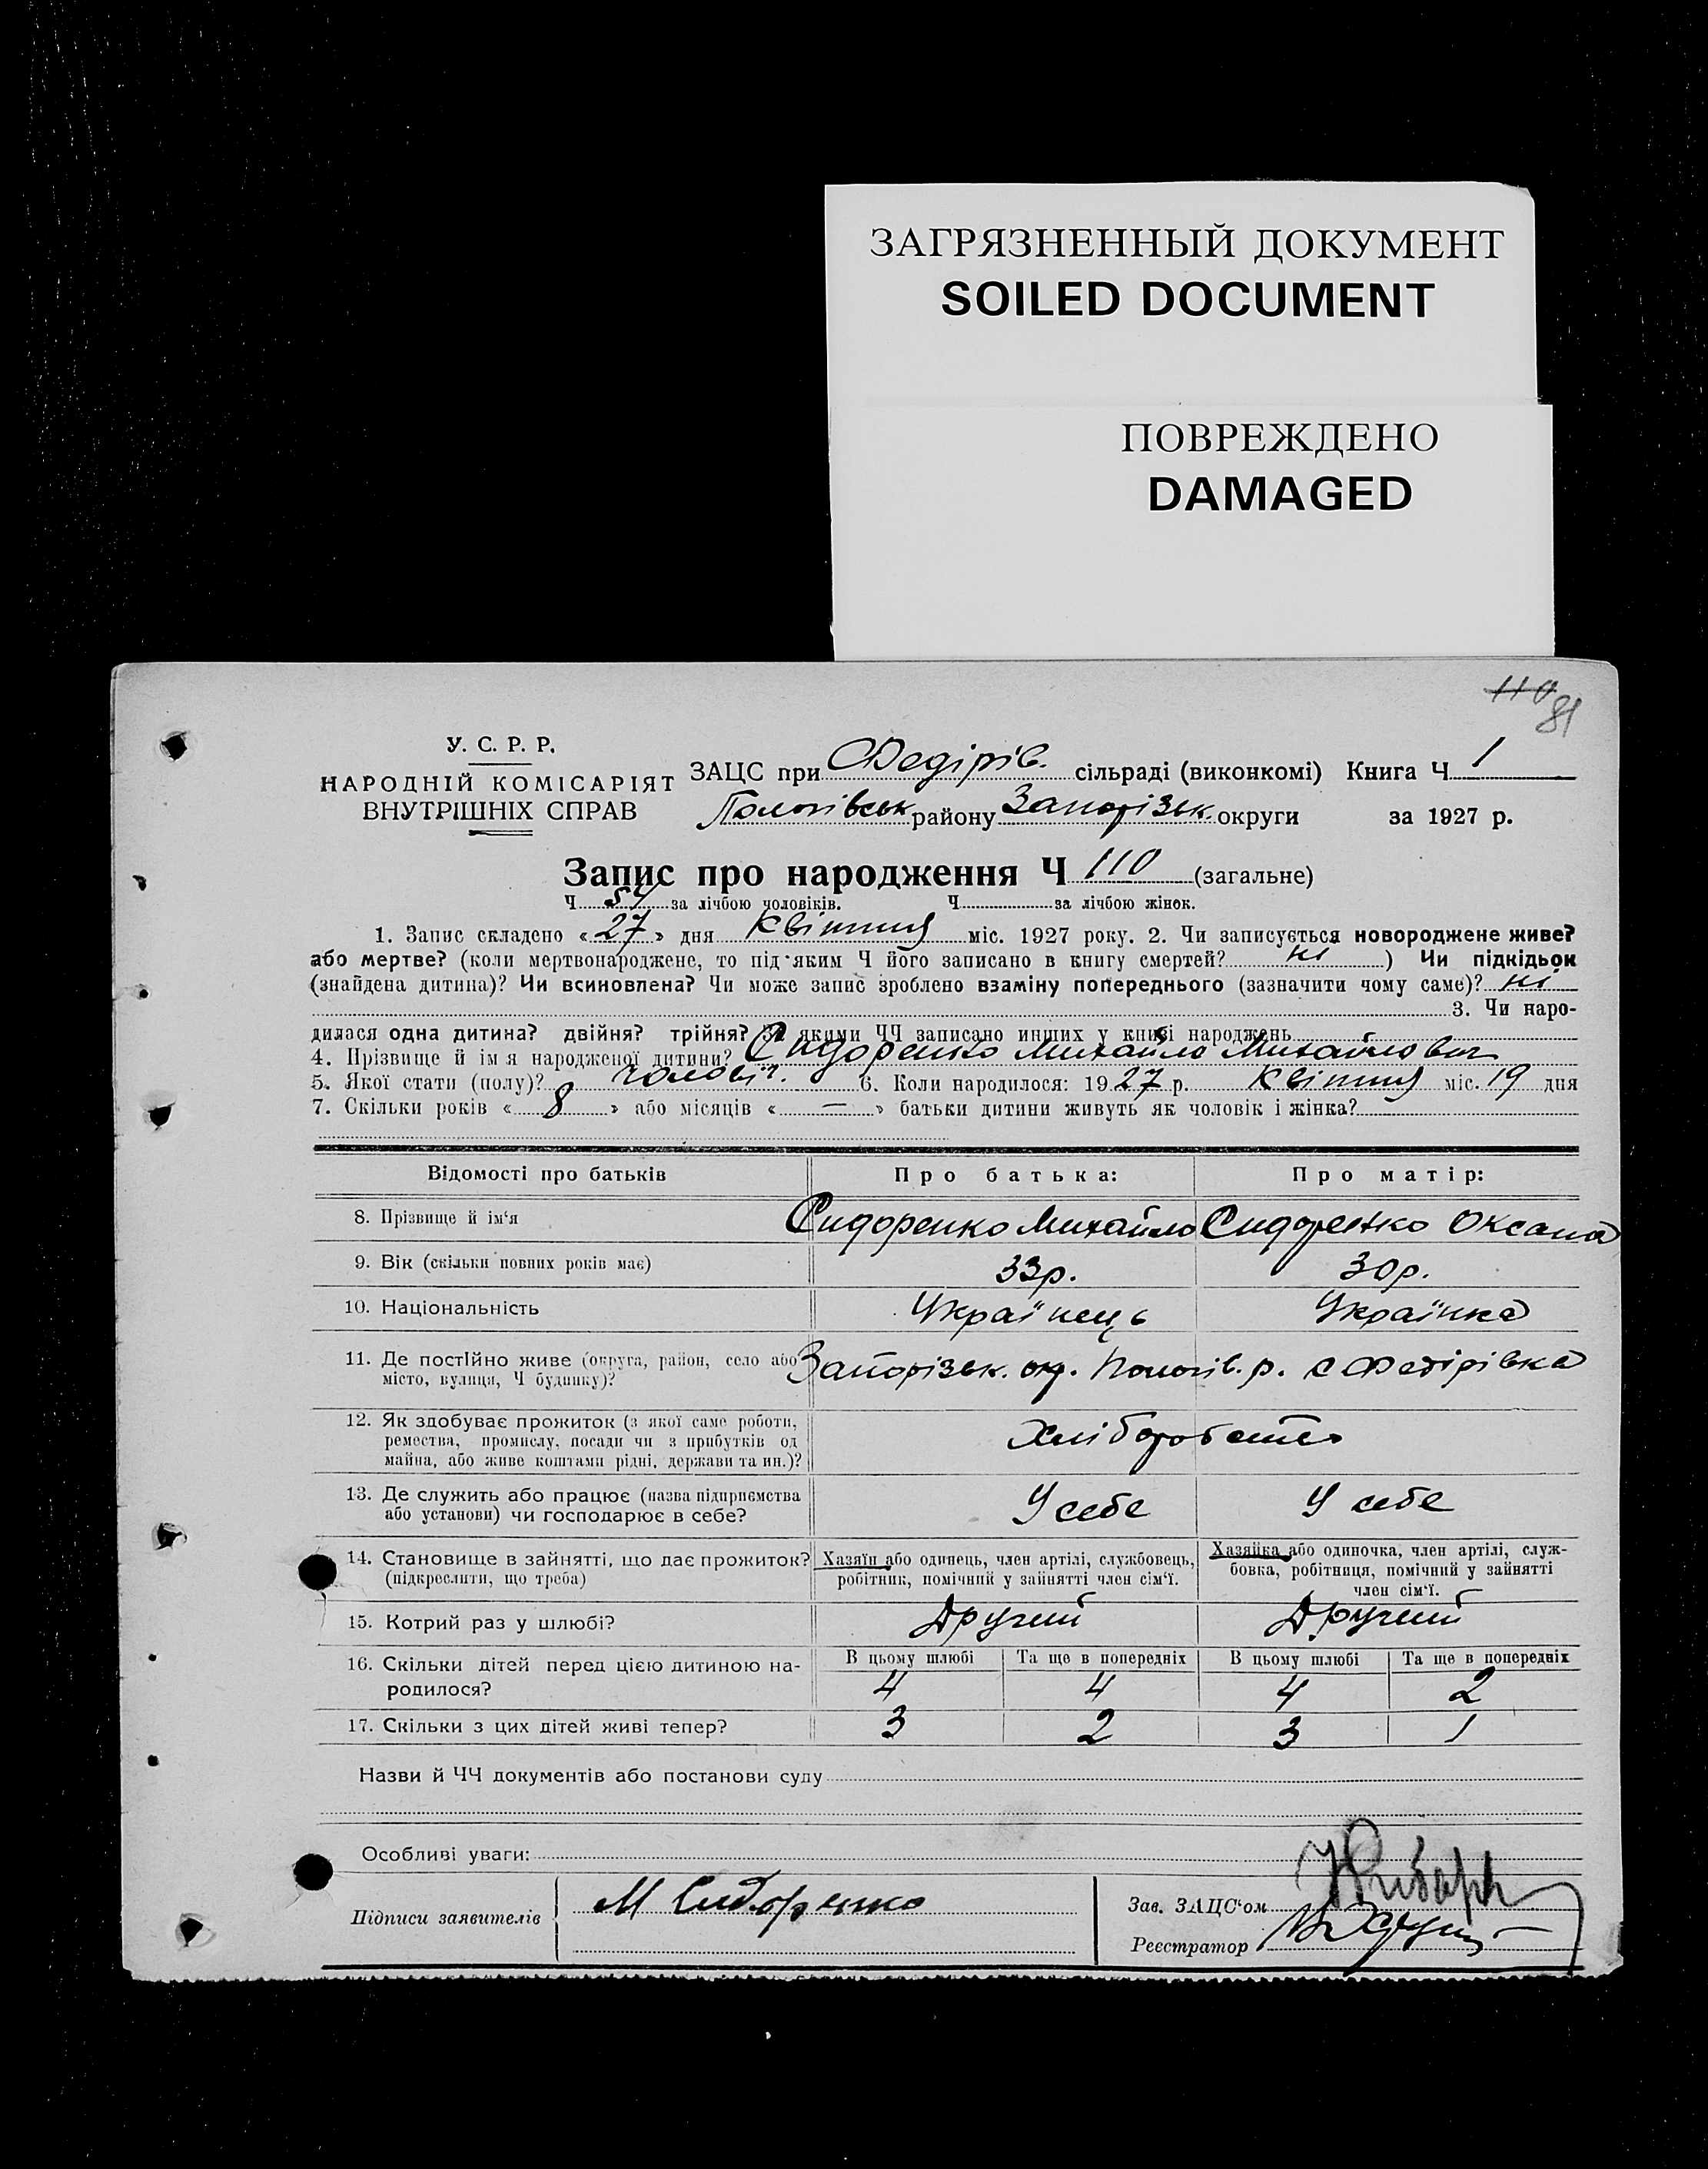 ЗАГРЯЗНЕННЫЙ ДОКУМЕНТ
SOILED DOCUMENT
ПОВРЕЖДЕНО
DAMAGED
110
81
У. С. Р. Р.
НАРОДНІЙ КОМІСАРІЯТ
ВНУТРІШНІХ СПРАВ
ЗАЦС при Федірів. сільраді (виконкомі) Книга Ч 1
Пологівськ району Запорізьк. округи за 1927 р.
Запис про народження Ч 110 (загальне)
Ч 54 за лічбою чоловіків. Ч за лічбою жінок.
1. Запис складено « 27 » дня Квітня міс. 1927 року. 2. Чи записується новороджене живе?
або мертве? (коли мертвонароджене, то під яким Ч його записано в книгу смертей? ні ) Чи підкідьок
(знайдена дитина)? Чи всиновлена? Чи може запис зроблено взаміну попереднього (зазначити чому саме)? ні
3. Чи наро-
дилася одна дитина? двійня? трійня? За якими ЧЧ записано инших у книзі народжень
4. Прізвище й ім'я народженої дитини? Сидоренко Михайло Михайлович
5. Якої стати (полу)? чоловіч. 6. Коли народилося: 1927 р. Квітня міс. 19 дня
7. Скільки років « 8 » або місяців « — » батьки дитини живуть як чоловік і жінка?
Відомості про батьків Про батька: Про матір:
8. Прізвище й ім'я Сидоренко Михайло Сидоренко Оксана
9. Вік (скільки повних років має) 33р. 30р.
10. Національність Українець Українка
11. Де постійно живе (округа, район, село або
місто, вулиця, Ч будинку)? Запорізьк. окр. Пологів. р. с Федірівка
12. Як здобуває прожиток (з якої саме роботи,
ремества, промислу, посади чи з прибутків од
майна, або живе коштами рідні, держави та ин.)? Хліборобство
13. Де служить або працює (назва підприємства
або установи) чи господарює в себе? У себе У себе
14. Становище в зайнятті, що дає прожиток?
(підкреслити, що треба)
Хазяїн або одинець, член артілі, службовець,
робітник, помічний у зайнятті член сім'ї.
Хазяйка або одиночка, член артілі, служ-
бовка, робітниця, помічний у зайнятті
член сім'ї.
15. Котрий раз у шлюбі? Другий Другий
16. Скільки дітей перед цією дитиною на-
родилося?
В цьому шлюбі Та ще в попередніх В цьому шлюбі Та ще в попередніх
4 4 4 2
17. Скільки з цих дітей живі тепер? 3 2 3 1
Назви й ЧЧ документів або постанови суду
Особливі уваги:
Підписи заявителів М Сидоренко
Зав. ЗАЦС'ом
Реєстратор